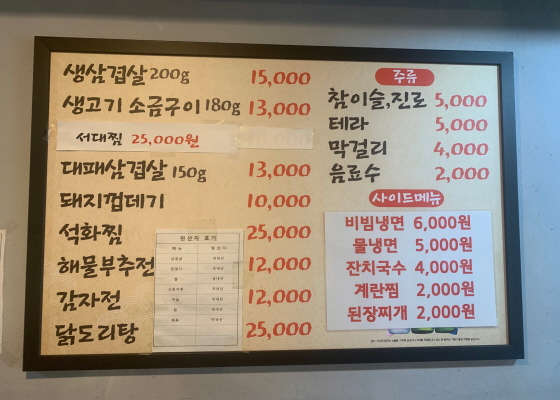 생삼겹살 200g 15,000
생고기 소금구이 180g 13,000
서대찜 25,000원
대패삼겹살 150g 13,000
돼지껍데기 10,000
석화찜 25,000
해물부추전 12,000
감자전 12,000
닭도리탕 25,000
원산지 표기
주류
참이슬,진로 5,000
테라 5,000
막걸리 4,000
음료수 2,000
사이드메뉴
비빔냉면 6,000원
물냉면 5,000원
잔치국수 4,000원
계란찜 2,000원
된장찌개 2,000원